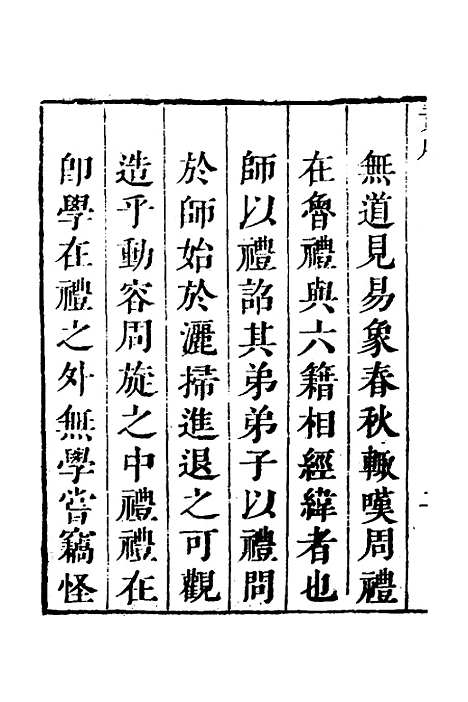 無道見易象春秋輙嘆周禮
在魯禮與六籍相經緯者也
師以禮詔其弟弟子以禮問
於師始於灑掃進退之可觀
造乎動容周旋之中禮禮在
卽學在禮之外無學嘗竊怪